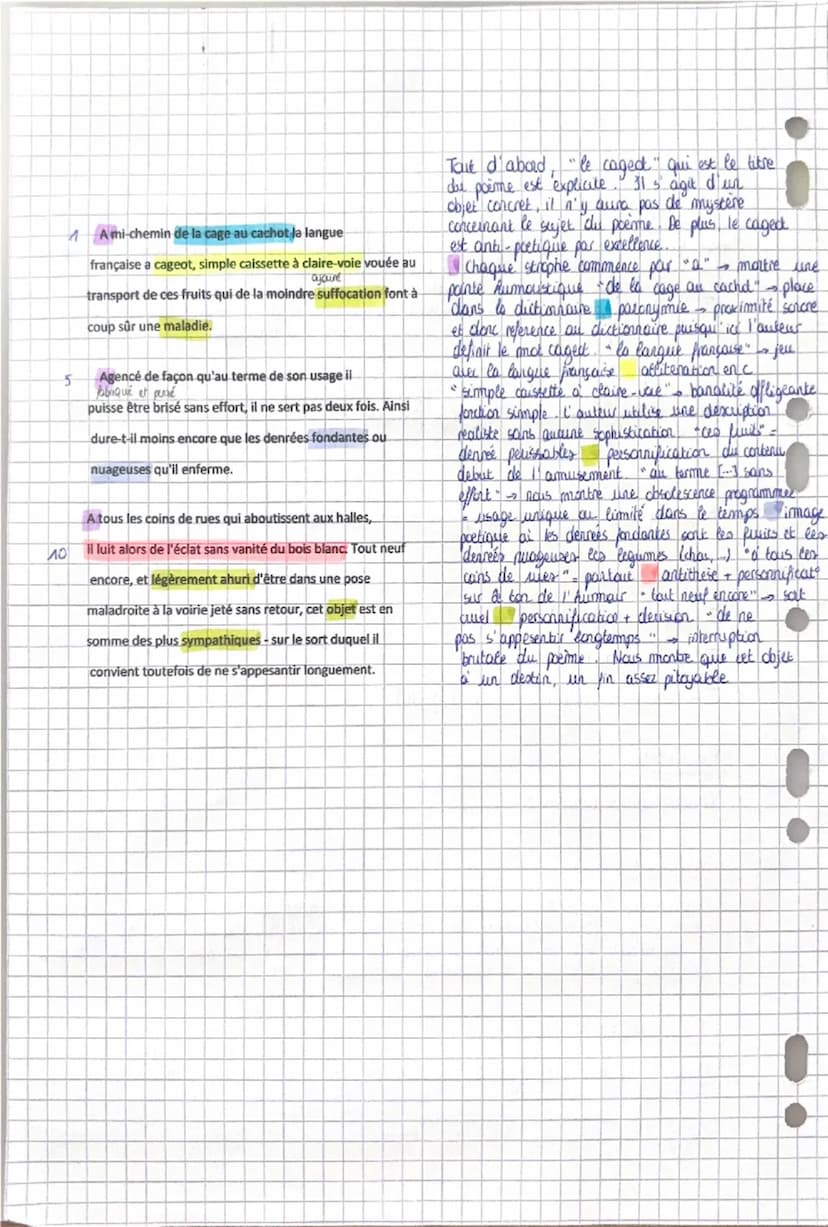 1 A mi-chemin de la cage au cachot la langue
française a cageot, simple caissette à claire-voie vouée au
ajouré
transport de ces fruits qui de la moindre suffocation font à
coup sûr une maladie.
5 Agencé de façon qu'au terme de son usage il
fabriqué et pensé
puisse être brisé sans effort, il ne sert pas deux fois. Ainsi
dure-t-il moins encore que les denrées fondantes ou
nuageuses qu'il enferme.
A tous les coins de rues qui aboutissent aux halles,
10 il luit alors de l'éclat sans vanité du bois blanc. Tout neuf
encore, et légèrement ahuri d'être dans une pose
maladroite à la voirie jeté sans retour, cet objet est en
somme des plus sympathiques - sur le sort duquel il
convient toutefois de ne s'appesantir longuement.
Tout d'abord, "le cageot" qui est le titre
du poème est explicite. Il s'agit d'un
objet concret, il n'y aura pas de mystère
concernant le sujet du poème. De plus, le cageot
est anti-poétique par excellence.
Chaque strophe commence par "a" → montre une
pointe humoristique "de la cage au cachot" → place
dans la dictionnaire paronymie → proximité sonore
et donc reference au dictionnaire puisqu'ici l'auteur
définit le mot cageot. "la langue française" → jeu
avec la langue française allitération en c
"simple caissette à claire-voie" → banalité affligeante
fonction simple. L'auteur utilise une description
réaliste sans aucune sophistication "ces fruits" =
denrée périssables personnification du contenu
debut de l'amusement. "au terme [...] sans
effort" → nous montre une obsolescence programmée
= usage unique ou limité dans le temps image
poetique où les denrées fondantes sont les fruits et les
denrées nuageuses les legumes (chou, ...) "à tous les
coins de rues" = partout antithèse + personnificat°
sur le ton de l'humour "tout neuf encore" → sort
cruel personnification + derision "de ne
pas s'appesentir longtemps" → interruption
brutale du poème. Nous montre que cet objet
à un destin, un fin assez pitoyable